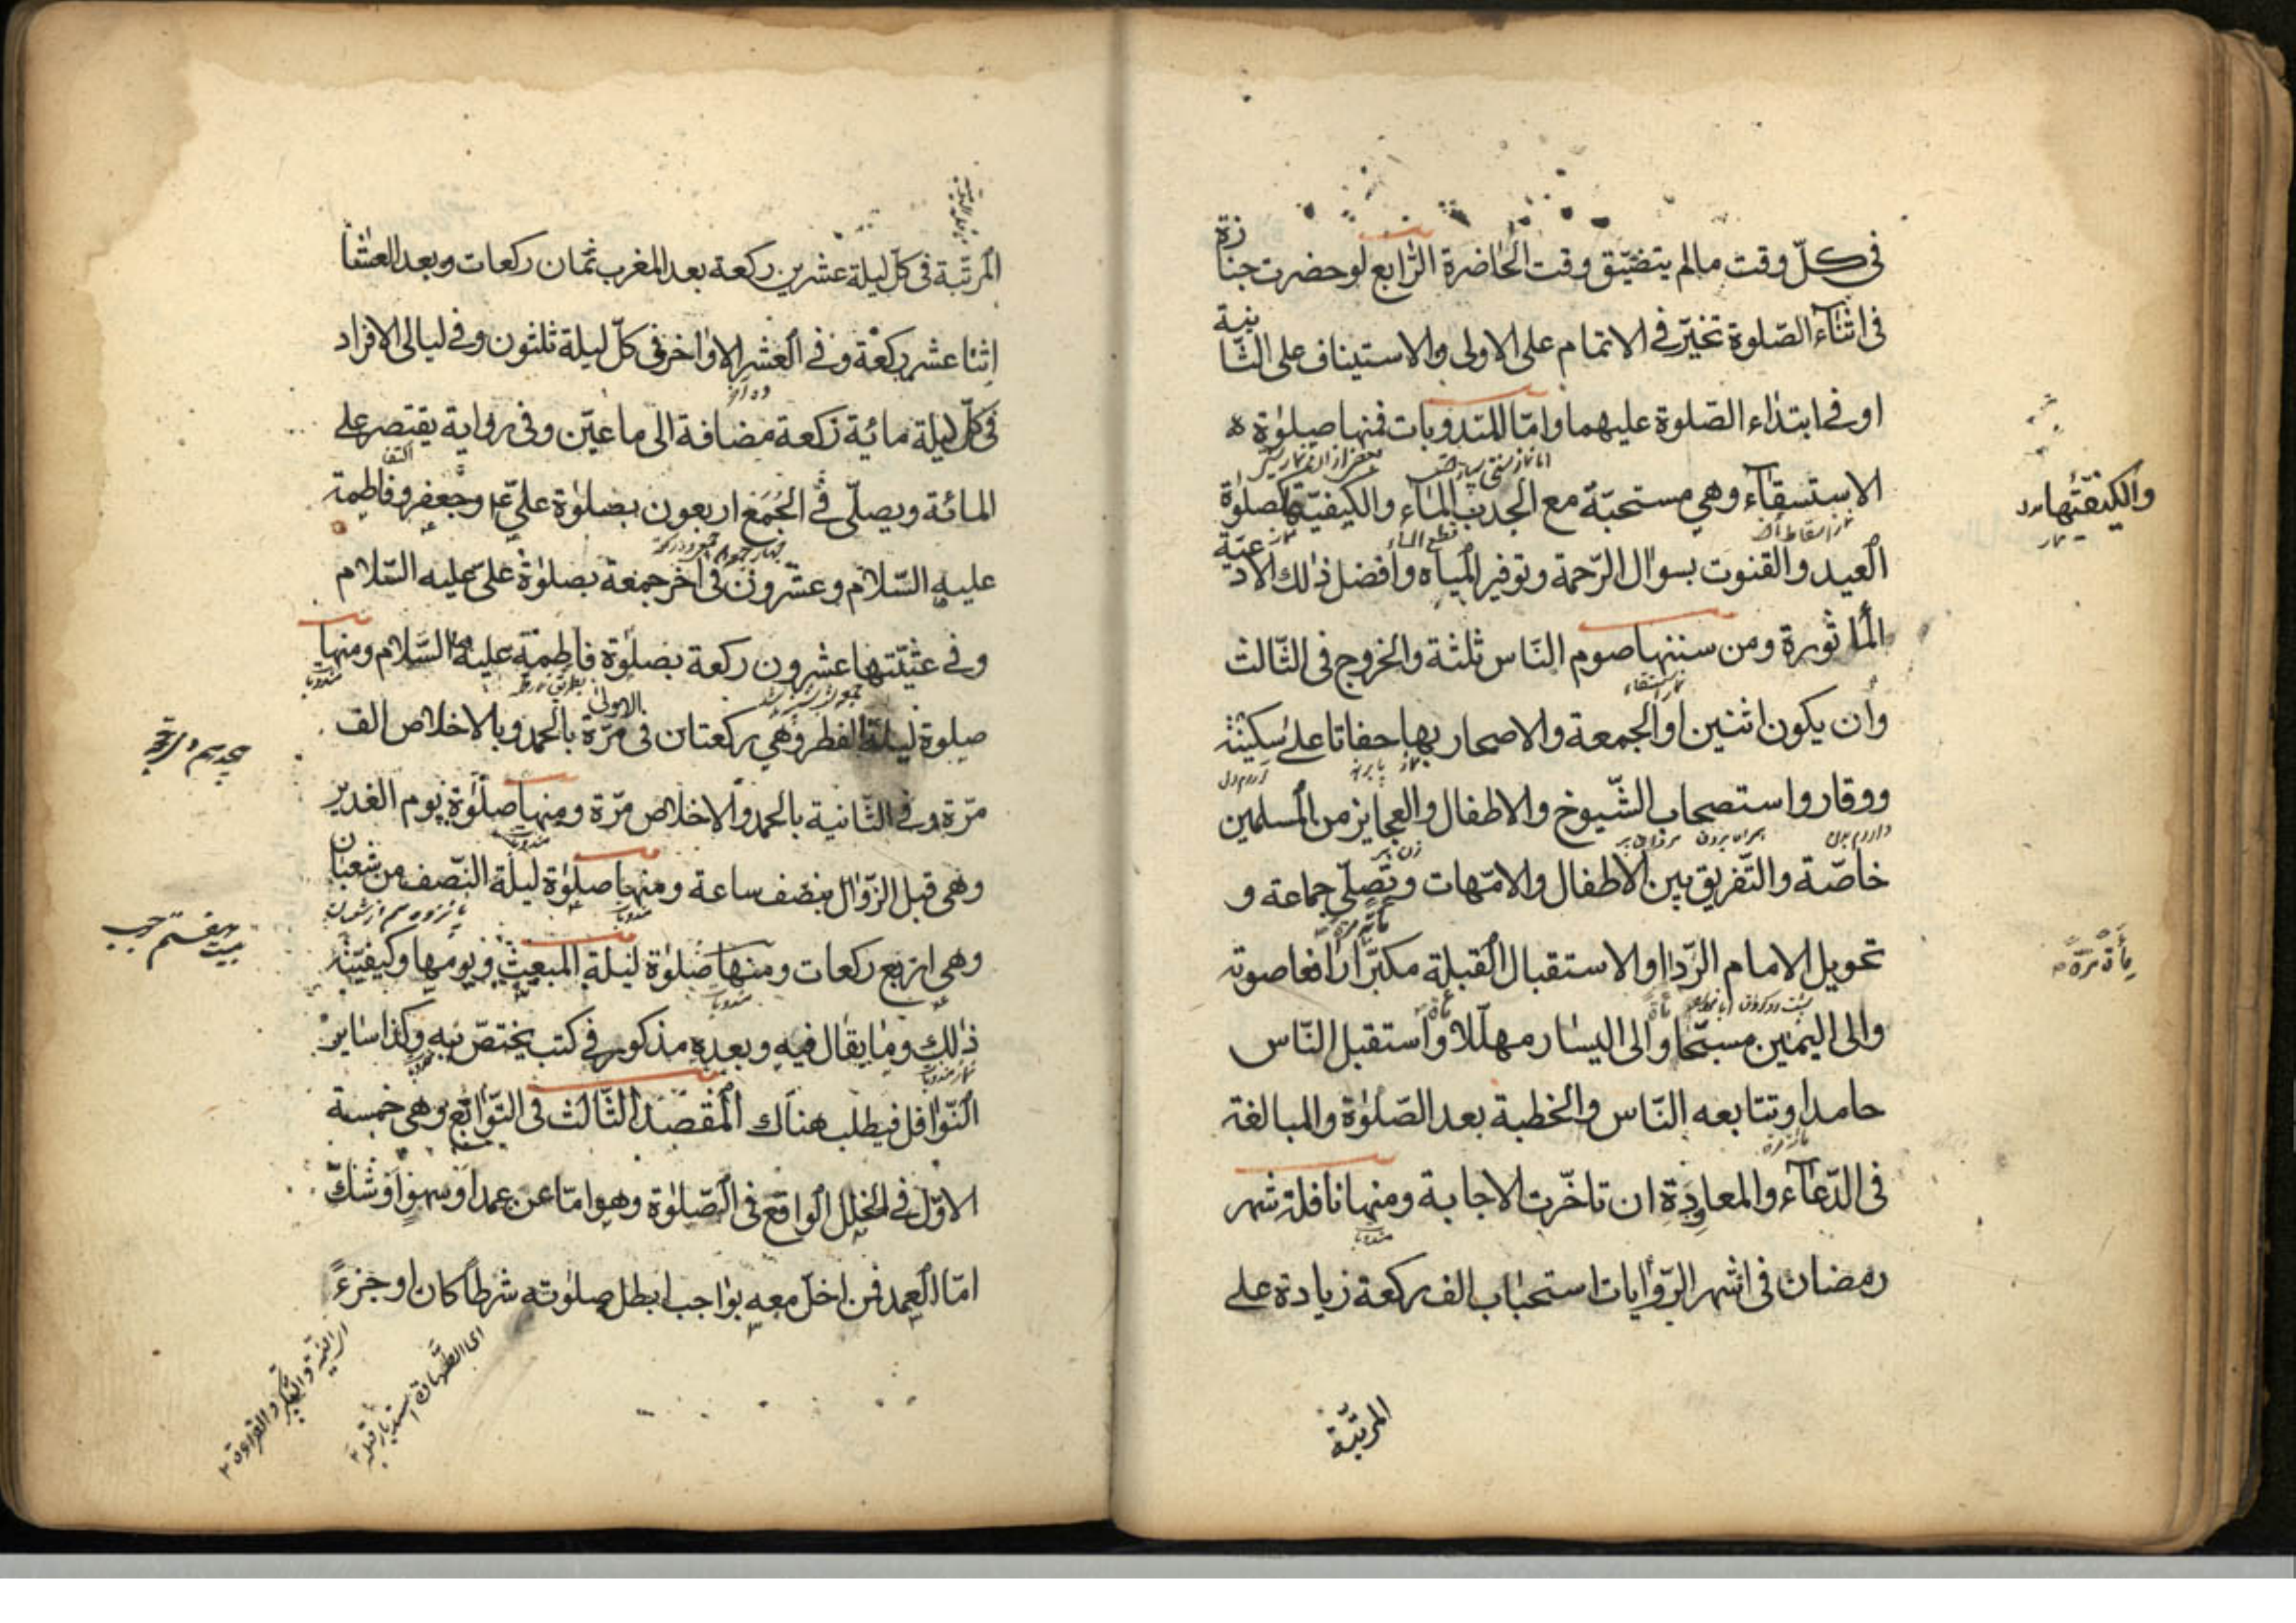 فى كلّ وقت ما لم يتضيّق وقت الحاضرة الرّابع لو حضرت جنازة
فى اثنآء الصّلوة تخيّر فى الاتمام على الاولى والاستيناف على الثّانية
او فى ابتداء الصّلوة عليهما وامّا المندوبات فمنها صلوة
الاستسقآء وهي مستحبّة مع الجدب الماء والكيفيّة كصلوة
العيد والقنوت بسوال الرّحمة وتوفير المياه وافضل ذلك الادعيّة
المأثورة ومن سننها صوم النّاس ثلثة والخروج فى الثّالث
وان يكون اثنين او الجمعة والاصحار بها حفاتا على سكينة
ووقار واستصحاب الشّيوخ والاطفال والعجايز من المسلمين
خاصّة والتّفريق بين الاطفال والامّهات وتصلّى جماعة و
تحويل الامام الرّداء والاستقبال القبلة مكبّرا رافعا صوته
والى اليمين مسبّحا والى اليسار مهلّلا واستقبل النّاس
حامدا وتتابعه النّاس والخطبة بعد الصّلوة والمبالغة
فى الدّعآء والمعاودة ان تاخّرت الاجابة ومنها نافلة شهر
رمضان فى اشهر الرّوايات استحباب الف ركعة زيادة على
المرتبّة
والكيفيّتها
مأة مرّة
المرتّبة فى كلّ ليلة عشرين ركعة بعد المغرب ثمان ركعات وبعد العشا
اثنا عشر ركعة وفى العشر الاواخر فى كلّ ليلة ثلثون وفى ليالى الافراد
فى كلّ ليلة مائية ركعة مضافة الى ما عيّن وفى رواية يقتصر على
المائة ويصلّى فى الجُمَع اربعون بصلوة علىّ وجعفر وفاطمة
عليه السّلام وعشرون فى اخر جمعة بصلوة علىّ عليه السّلام
وفى عشيّتها عشرون ركعة بصلوة فاطمة عليه السّلام ومنها
صلوة ليلة الفطر وهي ركعتان فى الاولى مرّة بالحمد وبالاخلاص الف
مرّة وفى الثّانية بالحمد والاخلاص مرّة ومنها صلوة يوم الغدير
وهى قبل الزّوال بنصف ساعة ومنها صلوة ليلة النّصف من شعبان
وهى اربع ركعات ومنها صلوة ليلة المبعث ويومها وكيفيّة
ذلك وما يقال فيه وبعده مذكور فى كتب يختصّ به وكذا ساير
النّوافل فيطلب هناك المقصد الثّالث فى التّوابع وهى خمسة
الاوّل فى الخلل الواقع فى الصّلوة وهو امّا عن عمد او سهو او شكّ
امّا العمد فمن اخلّ معه بواجب ابطل صلوته شرطا كان او جزءً